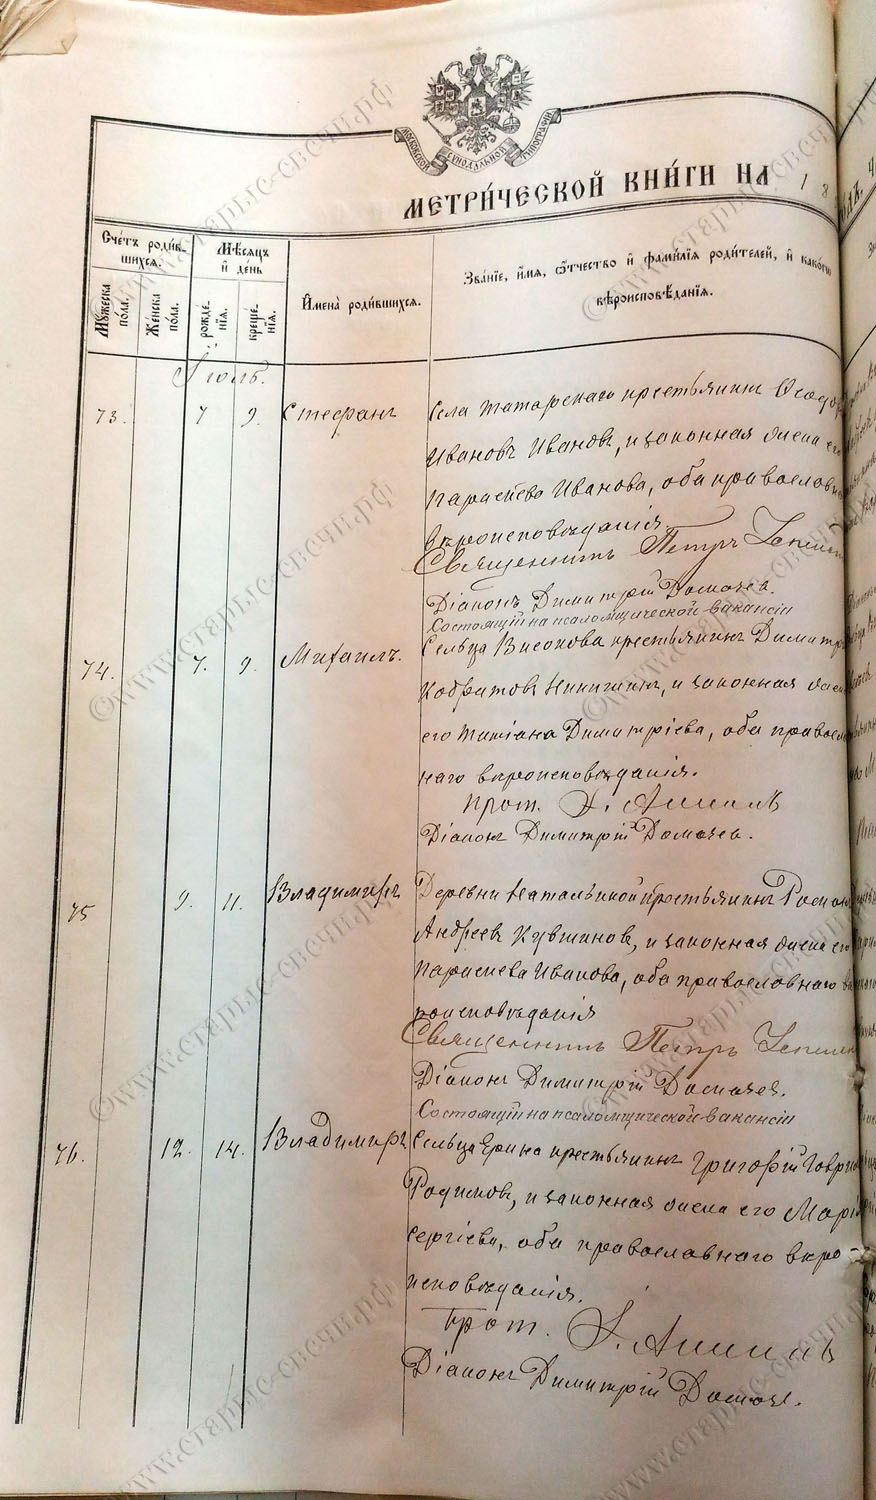 МОСКОВСКОЙ СѴНОДАЛЬНОЙ ТИПОГРАФІИ
МЕТРИ́ЧЕСКОЙ КНИ́ГИ НА 18
Сче́тъ роди́в-
шихся.
Мѣ́сяцъ
и҆ де́нь
Мꙋ́жеска
по́ла.
Же́нска
по́ла.
рожде-
нїя.
креще-
нїя.
И҆мена̀ роди́вшихся.
Зва́нїе, и҆́мя, ѻ҆́тчество и҆ фами́лїя роди́телей, и҆ како́гѡ
вѣроисповѣ́данїя.
Іюль.
73. 7 9. Стефанъ
Села Татарскаго крестьянинъ Ѳеодо
Ивановъ Ивановъ, и законная жена его
Параскева Иванова, оба православн
вѣроисповѣданія
Священникъ Петръ
Діаконъ Димитрій
Состоящій на псаломщической вакансіи
74. 7. 9. Михаилъ.
Сельца Високова крестьянинъ Димитр
Никитинъ, и законная жена
его Татіана Димитріева, оба правосла
наго вѣроисповѣданія.
прот.
Діаконъ Димитрій
75 9. 11. Владимиръ
Деревни крестьянинъ
Андреевъ Кувшиновъ, и законная жена его
Параскева Иванова, оба православнаго вѣ
роисповѣданія
Священникъ Петръ
Діаконъ Димитрій
Состоящій на псаломщической вакансіи
76. 12. 14. Владимиръ
Сельца Ерина крестьянинъ Григорій Гаври
Родіоновъ, и законная жена его Марія
Сергіева, оба православнаго вѣро-
исповѣданія.
Прот.
Діаконъ Димитрій
©www.старые-свечи.рф